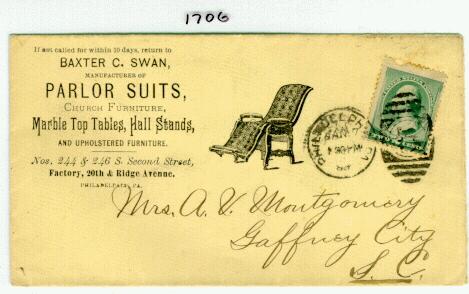 1706
If not called for within 10 days, return to
BAXTER C. SWAN,
MANUFACTURER OF
PARLOR SUITS,
CHURCH FURNITURE,
Marble Top Tables, Hall Stands,
AND UPHOLSTERED FURNITURE.
Nos. 244 & 246 S. Second Street,
Factory, 20th & Ridge Avenue.
PHILADELPHIA, PA.
Mrs. A. V. Montgomery
Gaffney City
S.C.